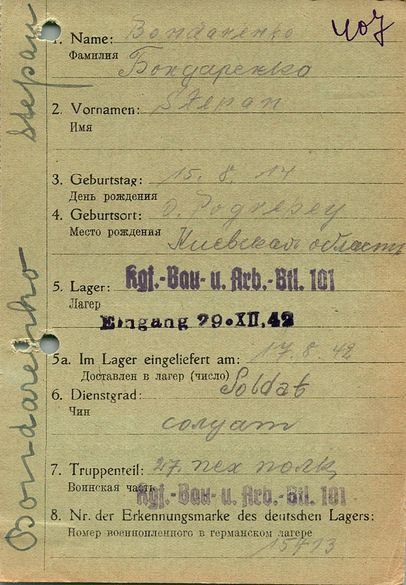 Bondarenko Stepan
407
1. Name: Bondarenko
Фамилия Бондаренко
2. Vornamen: Stepan
Имя
3. Geburtstag: 15. 8. 14
День рождения
4. Geburtsort: O.
Место рождения Киевская области
5. Lager: Kgf.-Bau- u. Arb.-Btl. 101
Лагер
Eingang 29.XII.42
5a. Im Lager eingeliefert am: 17. 8. 42
Доставлен в лагер (число)
6. Dienstgrad: Soldat
Чин солдат
7. Truppenteil: 27. пех полк
Воинская часть
Kgf.-Bau- u. Arb.-Btl. 101
8. Nr. der Erkennungsmarke des deutschen Lagers:
Номер военнопленного в германском лагере